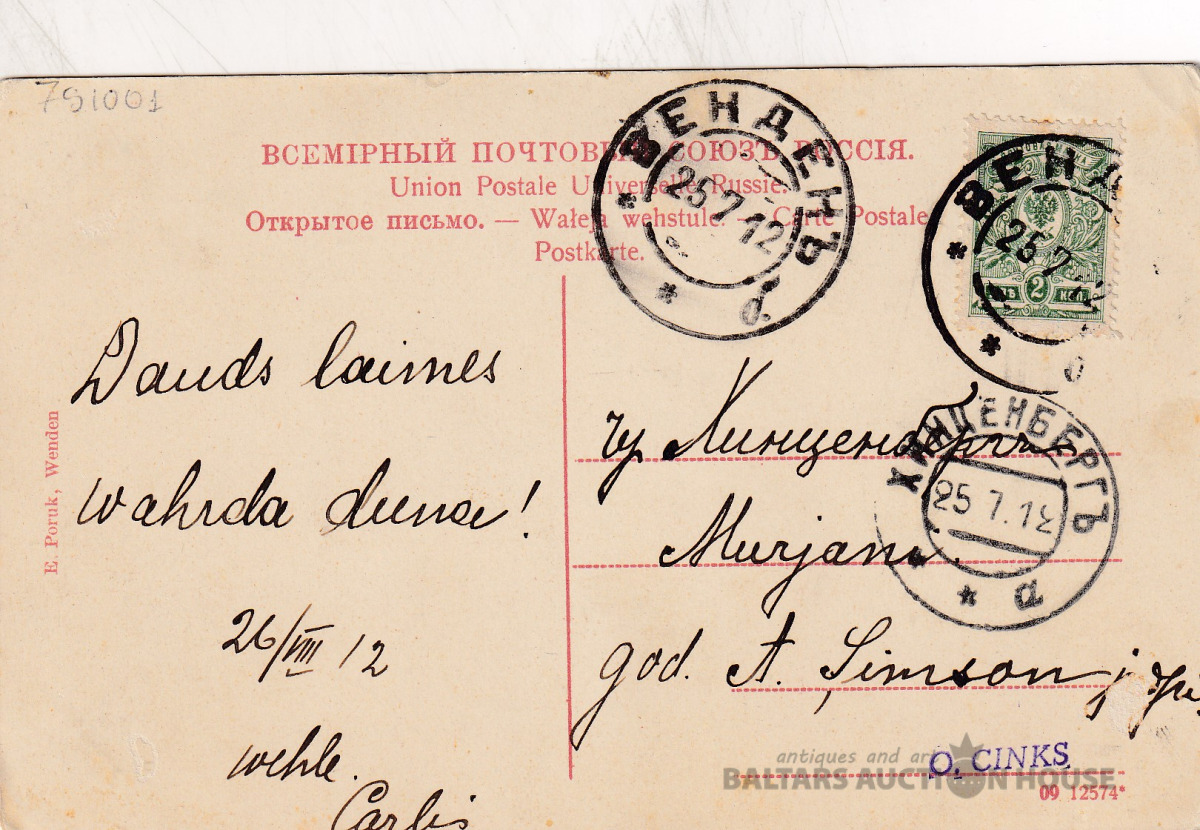 791001
ВСЕМІРНЫЙ ПОЧТОВЫЙ СОЮЗЪ РОССІЯ.
Union Postale Universelle Russie.
Открытое письмо. — Wałeja wehstule. — Carte Postale
Postkarte.
ВЕНДЕНЪ
25 7 12
б
ВЕНД
25 7 12
2
б
Dauds laimes
wahrda duna!
26/VIII 12
wehle.
Carlis
E. Poruk, Wenden
Хинценбергъ
Murjani.
god. A. Simson j.
ХИНЦЕНБЕРГЪ
25 7.12
а
O. CINKS
antiques and art
BALTARS AUCTION HOUSE
09 12574*